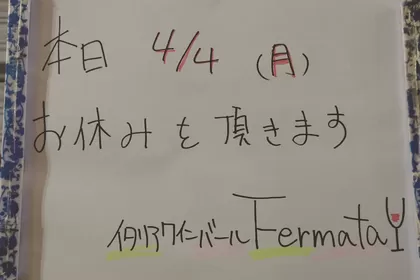 本日 4/4 (月)
お休みを頂きます
イタリアワインバール Fermata